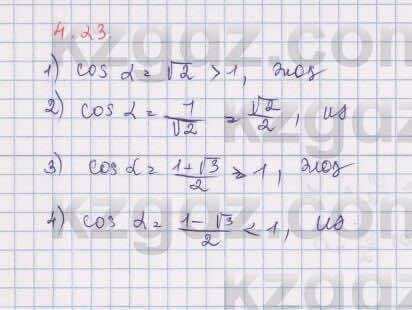 4.23.
1) cos α = √2 > 1, жоқ
2) cos α = 1/√2 = √2/2, иә
3) cos α = (1+√3)/2 > 1, жоқ
4) cos α = (1-√3)/2 < 1, иә
kzgdz.com